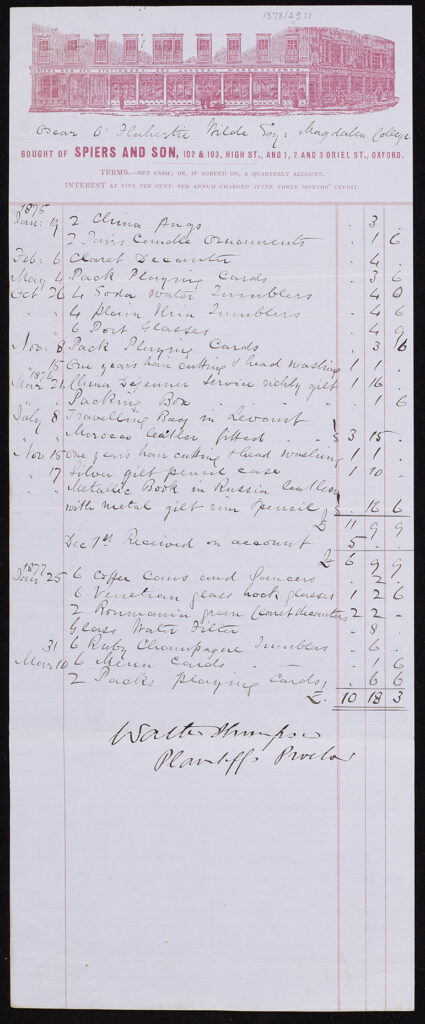 1878/29:1
SPIERS AND SON, STATIONERS AND GENERAL WAREHOUSEMEN
Oscar O' Flahertie Wilde Esq: Magdalen College
BOUGHT OF SPIERS AND SON, 102 & 103, HIGH ST., AND 1, 2 AND 3 ORIEL ST., OXFORD.
TERMS.—NET CASH; OR, IF AGREED ON, A QUARTERLY ACCOUNT.
INTEREST AT FIVE PER CENT. PER ANNUM CHARGED AFTER THREE MONTHS' CREDIT.
1875
Jan: 19 2 China Mugs . 3 .
2 Pairs Candle Ornaments . 1 6
Feb: 6 Claret Decanter . 4 .
May 4 Pack Playing Cards . 3 6
Oct 26 4 Soda Water Tumblers . 4 0
" " 4 plain Thin Tumblers . 4 6
" " 6 Port Glasses . 4 9
Nov: 8 Pack Playing Cards . 3 6
" 15 One years hair cutting & head washing 1 1 .
1876
Mar: 21 China Dejeuner Service richly gilt 1 16 .
" " Packing Box . 1 6
July 8 Travelling Bag in Levant
" Morocco leather fitted 3 15 .
Nov 15 One years hair cutting & head washing 1 1 .
" 17 Silver gilt pencil case 1 10 .
" " Metallic Book in Russia leather
with metal gilt rim & pencil . 16 6
£ 11 9 9
Dec 7th Received on account 5 . .
£ 6 9 9
1877
Jan: 25 6 Coffee Cans and Saucers . 2 .
6 Venetian glass hock glasses 1 2 6
2 Roumania green Claret decanters 2 2 -
Glass Water Filter . 8 .
31 6 Ruby Champagne Tumblers . 6 .
Mar: 10 6 Menu Cards . 1 6
2 Packs playing Cards . 6 6
£ 10 18 3
Walter Thompson
Plaintiffs Proctor